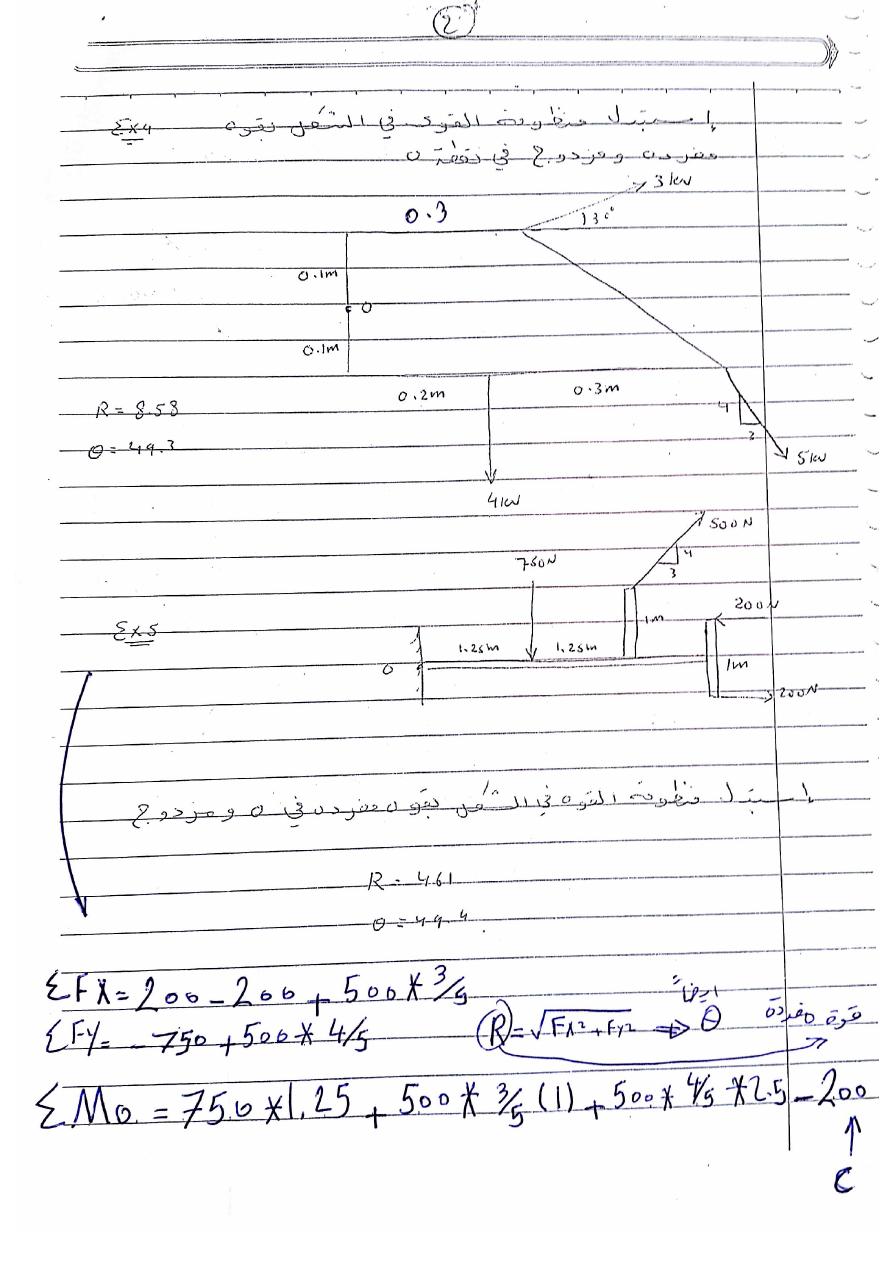 2
Ex4 إستبدل منظومة القوى في الشكل بقوه
مفرده ومزدوج في نقطة o
3 kN
0.3
30°
0.1m
O
0.1m
0.2m 0.3m
R = 8.58
4
3
θ = 49.3
5 kN
4 kN
500 N
4
3
750 N
200 N
Ex5
1m
1.25m 1.25m
O
1m
200 N
إستبدل منظومة القوه في الشكل بقوه مفرده في o ومزدوج
R = 461
θ = 49.4
ΣFX = 200 - 200 + 500 * 3/5
ايضاً
ΣFY = - 750 + 500 * 4/5 R = √FX² + FY² ⇒ θ قوة مفردة
ΣMo = 750 * 1.25 + 500 * 3/5 (1) + 500 * 4/5 * 2.5 - 200
C